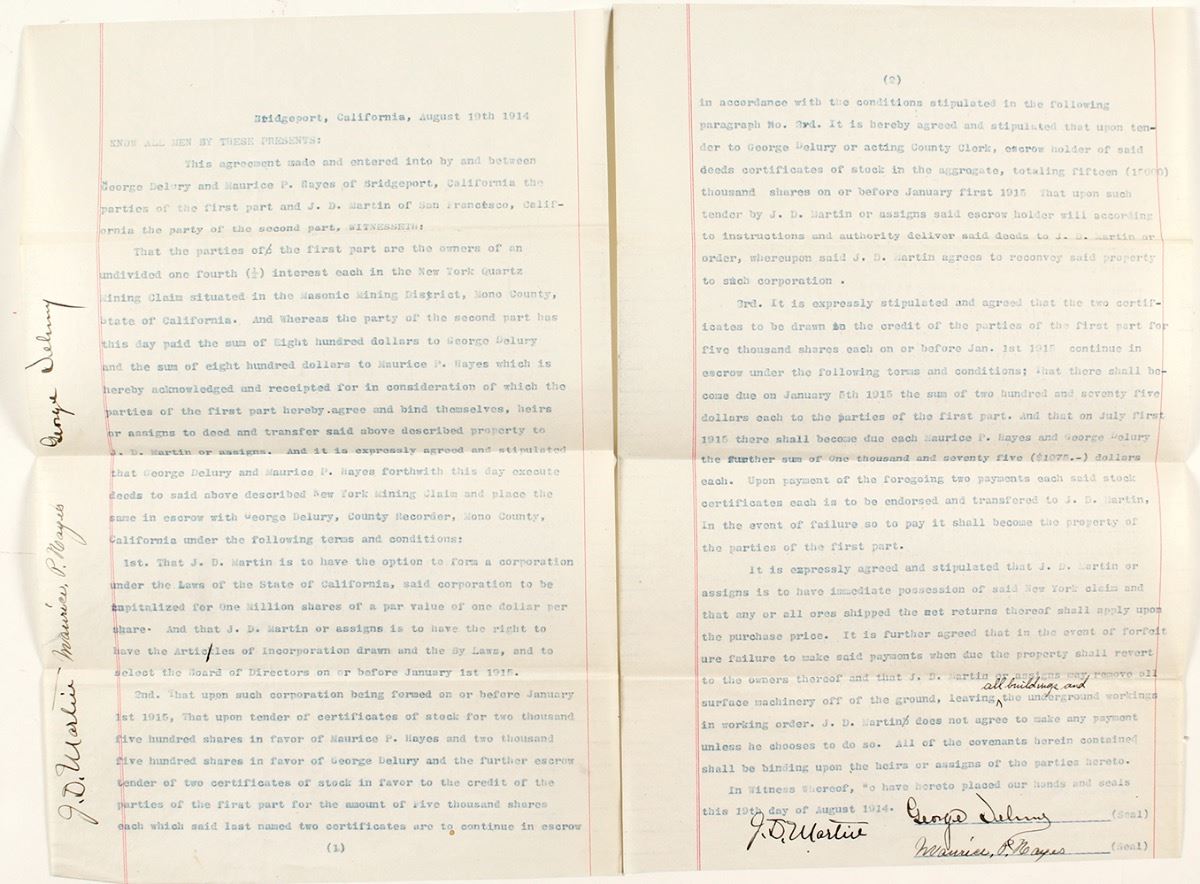 Bridgeport, California, August 19th 1914
KNOW ALL MEN BY THESE PRESENTS:
This agreement made and entered into by and between
George Delury and Maurice P. Hayes of Bridgeport, California the
parties of the first part and J. D. Martin of San Francesco, Calif-
ornia the party of the second part, WITNESSETH:
That the parties of the first part are the owners of an
undivided one fourth (¼) interest each in the New York Quartz
Mining Claim situated in the Masonic Mining District, Mono County,
State of California. And Whereas the party of the second part has
this day paid the sum of Eight hundred dollars to George Delury
and the sum of eight hundred dollars to Maurice P. Hayes which is
hereby acknowledged and receipted for in consideration of which the
parties of the first part hereby.agree and bind themselves, heirs
or assigns to deed and transfer said above described property to
J. D. Martin or assigns. And it is expressly agreed and stipulated
that George Delury and Maurice P. Hayes forthwith this day execute
deeds to said above described New York Mining Claim and place the
same in escrow with George Delury, County Recorder, Mono County,
California under the following terms and conditions:
1st. That J. D. Martin is to have the option to form a corporation
under the Laws of the State of California, said corporation to be
capitalized for One Million shares of a par value of one dollar per
share. And that J. D. Martin or assigns is to have the right to
have the Articles of Incorporation drawn and the By Laws, and to
select the Board of Directors on or before January 1st 1915.
2nd. That upon such corporation being formed on or before January
1st 1915, That upon tender of certificates of stock for two thousand
five hundred shares in favor of Maurice P. Hayes and two thousand
five hundred shares in favor of George Delury and the further escrow
tender of two certificates of stock in favor to the credit of the
parties of the first part for the amount of Five thousand shares
each which said last named two certificates are to continue in escrow
(1)
J. D. Martin Maurice, P. Hayes George Delury
(2)
in accordance with the conditions stipulated in the following
paragraph No. 3rd. It is hereby agreed and stipulated that upon ten-
der to George Delury or acting County Clerk, escrow holder of said
deeds certificates of stock in the aggregate, totaling fifteen (15000)
thousand shares on or before January first 1915 That upon such
tender by J. D. Martin or assigns said escrow holder will according
to instructions and authority deliver said deeds to J. D. Martin or
order, whereupon said J. D. Martin agrees to reconvey said property
to such corporation .
3rd. It is expressly stipulated and agreed that the two certif-
icates to be drawn in the credit of the parties of the first part for
five thousand shares each on or before Jan. 1st 1915 continue in
escrow under the following terms and conditions; That there shall be-
come due on January 5th 1915 the sum of two hundred and seventy five
dollars each to the parties of the first part. And that on July first
1915 there shall become due each Maurice P. Hayes and George Delury
the further sum of One thousand and seventy five ($1075.-) dollars
each. Upon payment of the foregoing two payments each said stock
certificates each is to be endorsed and transfered to J. D. Martin,
In the event of failure so to pay it shall become the property of
the parties of the first part.
It is expressly agreed and stipulated that J. D. Martin or
assigns is to have immediate possession of said New York claim and
that any or all ores shipped the net returns thereof shall apply upon
the purchase price. It is further agreed that in the event of forfeit
ure failure to make said payments when due the property shall revert
to the owners thereof and that J. D. Martin or assigns may remove all
all buildings and
surface machinery off of the ground, leaving the underground workings
in working order. J. D. Martin does not agree to make any payment
unless he chooses to do so. All of the covenants herein contained
shall be binding upon the heirs or assigns of the parties hereto.
In Witness Whereof, We have hereto placed our hands and seals
this 19th day of August 1914.
George Delury (Seal)
J. D. Martin
Maurice, P. Hayes (Seal)